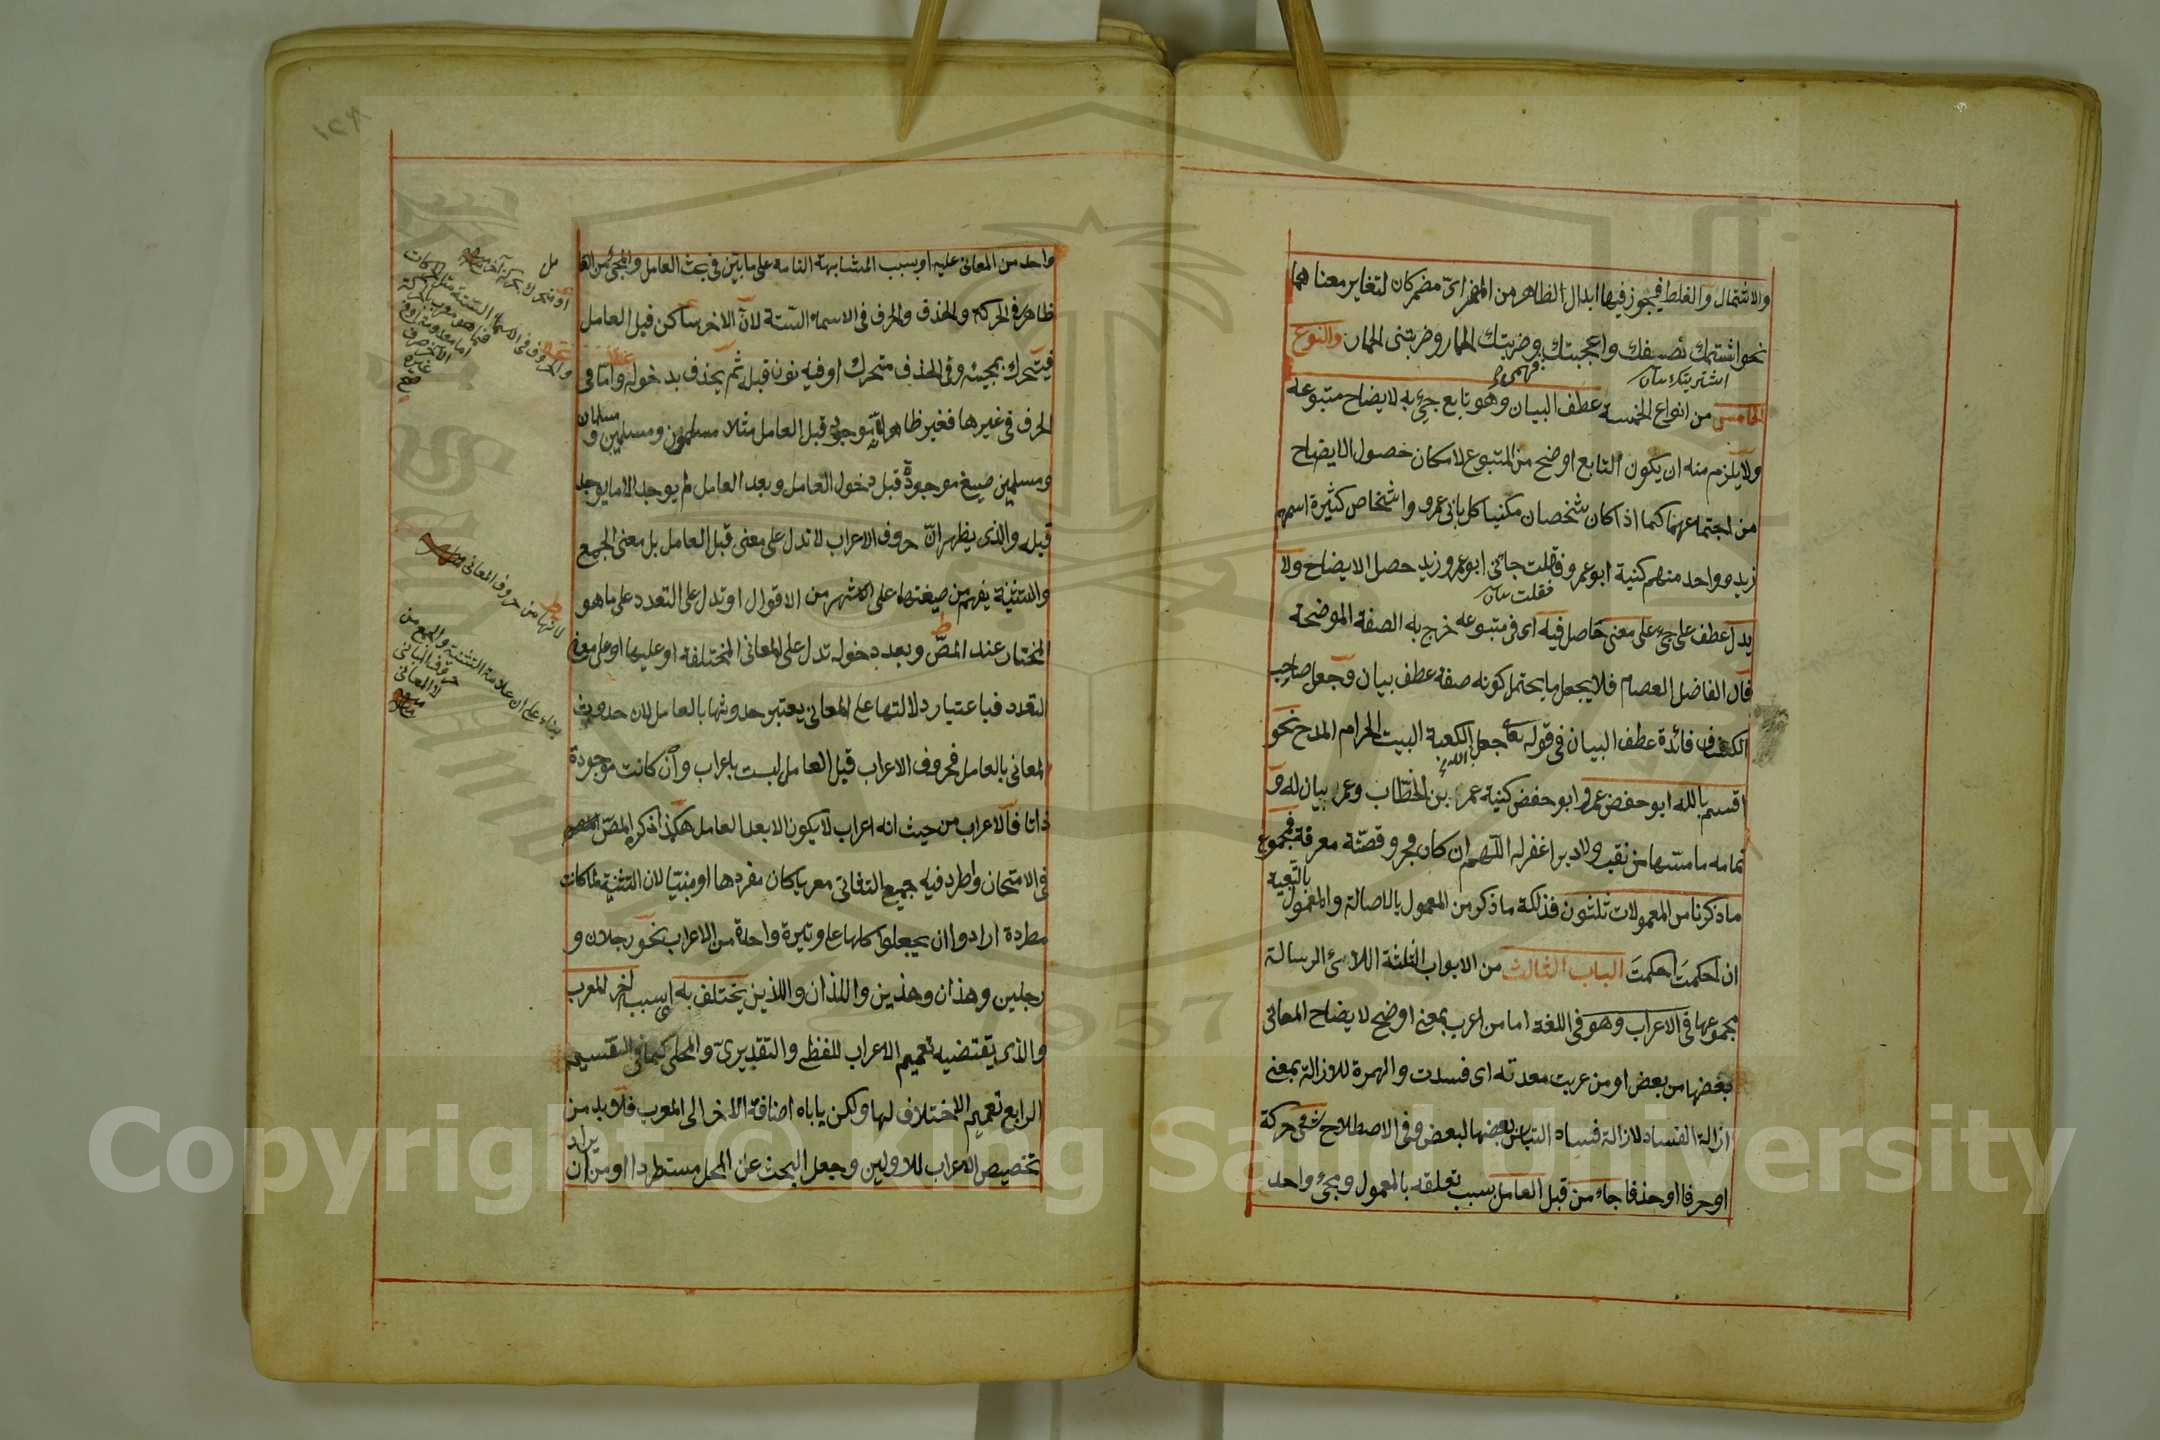 والاشتمال والغلط فيجوز فيها ابدال الظاهر من المضمر اى مضمر كان لتغاير معناهما
نحو اشتمك نصفك واعجبتك وضربتك الحمار وضربتنى الحمار والنوع
اشتريتك
الخامس من انواع الخمسة عطف البيان وهو تابع جئ به لايضاح متبوعه
ولا يلزم منه ان يكون التابع اوضح من المتبوع لامكان حصول الايضاح
من اجتماعهما كما اذا كان شخصان مكنيا كل بابى عمرو واشخاص كثيرة اسمهم
زيد وواحد منهم كنية ابو عمرو فقلت جائنى ابو عمرو زيد حصل الايضاح ولا
يدل عطف على جئ على معنى حاصل فيه اى فى متبوعه خرج به الصفة الموضحة
قال الفاضل العصام فلا يجعل ما يحتمل كونه صفة عطف بيان وجعل صاحب
الكشاف فائدة عطف البيان فى قوله تعالى جعل الله الكعبة البيت الحرام المدح نحو
اقسم بالله ابو حفص عمر وابو حفص كنية عمر بن الخطاب وعمر بيان له و
تمامه ما مسها من نقب ولا دبر اغفر له اللهم ان كان فجر وقصته معرفة فمجموع
ما ذكرنا من المعمولات ثلثون فذلكة ما ذكر من المعمول بالاصالة والمعمول بالتبعية
ان احكمت احكمت الباب الثالث من الابواب الثلثة اللائى الرسالة
مجموعها فى الاعراب وهو فى اللغة اما من اعرب بمعنى اوضح لايضاح المعانى
بعضها من بعض او من عربت معدته اى فسدت والهمزة للازالة بمعنى
ازالة الفساد لازالة فساد التباس بعضها لبعض وفى الاصطلاح شئ حركة
او حرفا او حذفا جاء من قبل العامل بسبب تعلقه بالمعمول ومجئ واحد
واحد من المعانى عليه او بسبب المشابهة التامة على ما بين فى بحث العامل والمجئ من
ظاهر فى الحركة والحذف والحرف فى الاسماء الستة لان الاخر ساكن قبل العامل
فيتحرك بمجيئه وفى الحذف متحرك او فيه نون قبله ثم يحذف بدخوله واما فى
الحرف فى غيرها فغير ظاهر لانه موجود قبل العامل مثلا مسلمون ومسلمين ومسلمان
ومسلمين صيغ موجودة قبل دخول العامل وبعد العامل لم يوجد الا ما يوجد
قبله والذى يظهر ان حروف الاعراب لا تدل على معنى قبل العامل بل معنى الجمع
والتثنية يفهم من صيغتها على اشهر من الاقوال او تدل على التعدد على ما هو
المختار عند المص وبعد دخوله تدل على المعانى المختلفة او عليها او على معنى
التعدد فباعتبار دلالتها على المعانى يعتبر حدوثها بالعامل لان حدوث
المعانى بالعامل فحروف الاعراب قبل العامل ليست باعراب وان كانت موجودة
ذاتا فالاعراب من حيث انه اعراب لا يكون الا بعد العامل هكذا ذكره المص
فى الامتحان واطرد فيه جميع التثانى معربا كان مفردها او مبنيا لان التثنية لما كانت
مطردة ارادوا ان يجعلوا كلها على وتيرة واحدة من الاعراب نحو رجلان و
رجلين وهذان وهذين واللذان واللذين يختلف به اى بسببه اخر المعرب
والذى يقتضيه تعميم الاعراب للفظى والتقديرى والمحلى كما فى التقسيم
الرابع تعميم الاختلاف لها ولكن ياباه اضافة الاخر الى المعرب فلا بد من
تخصيص الاعراب للاولين وجعل البحث عن المحل مستطردا او من ان يراد
لانها من حروف المعانى
بناء على ان علامة التثنية والجمع من
حروف المبانى
لا المعانى
Copyright © King Saud University
1957